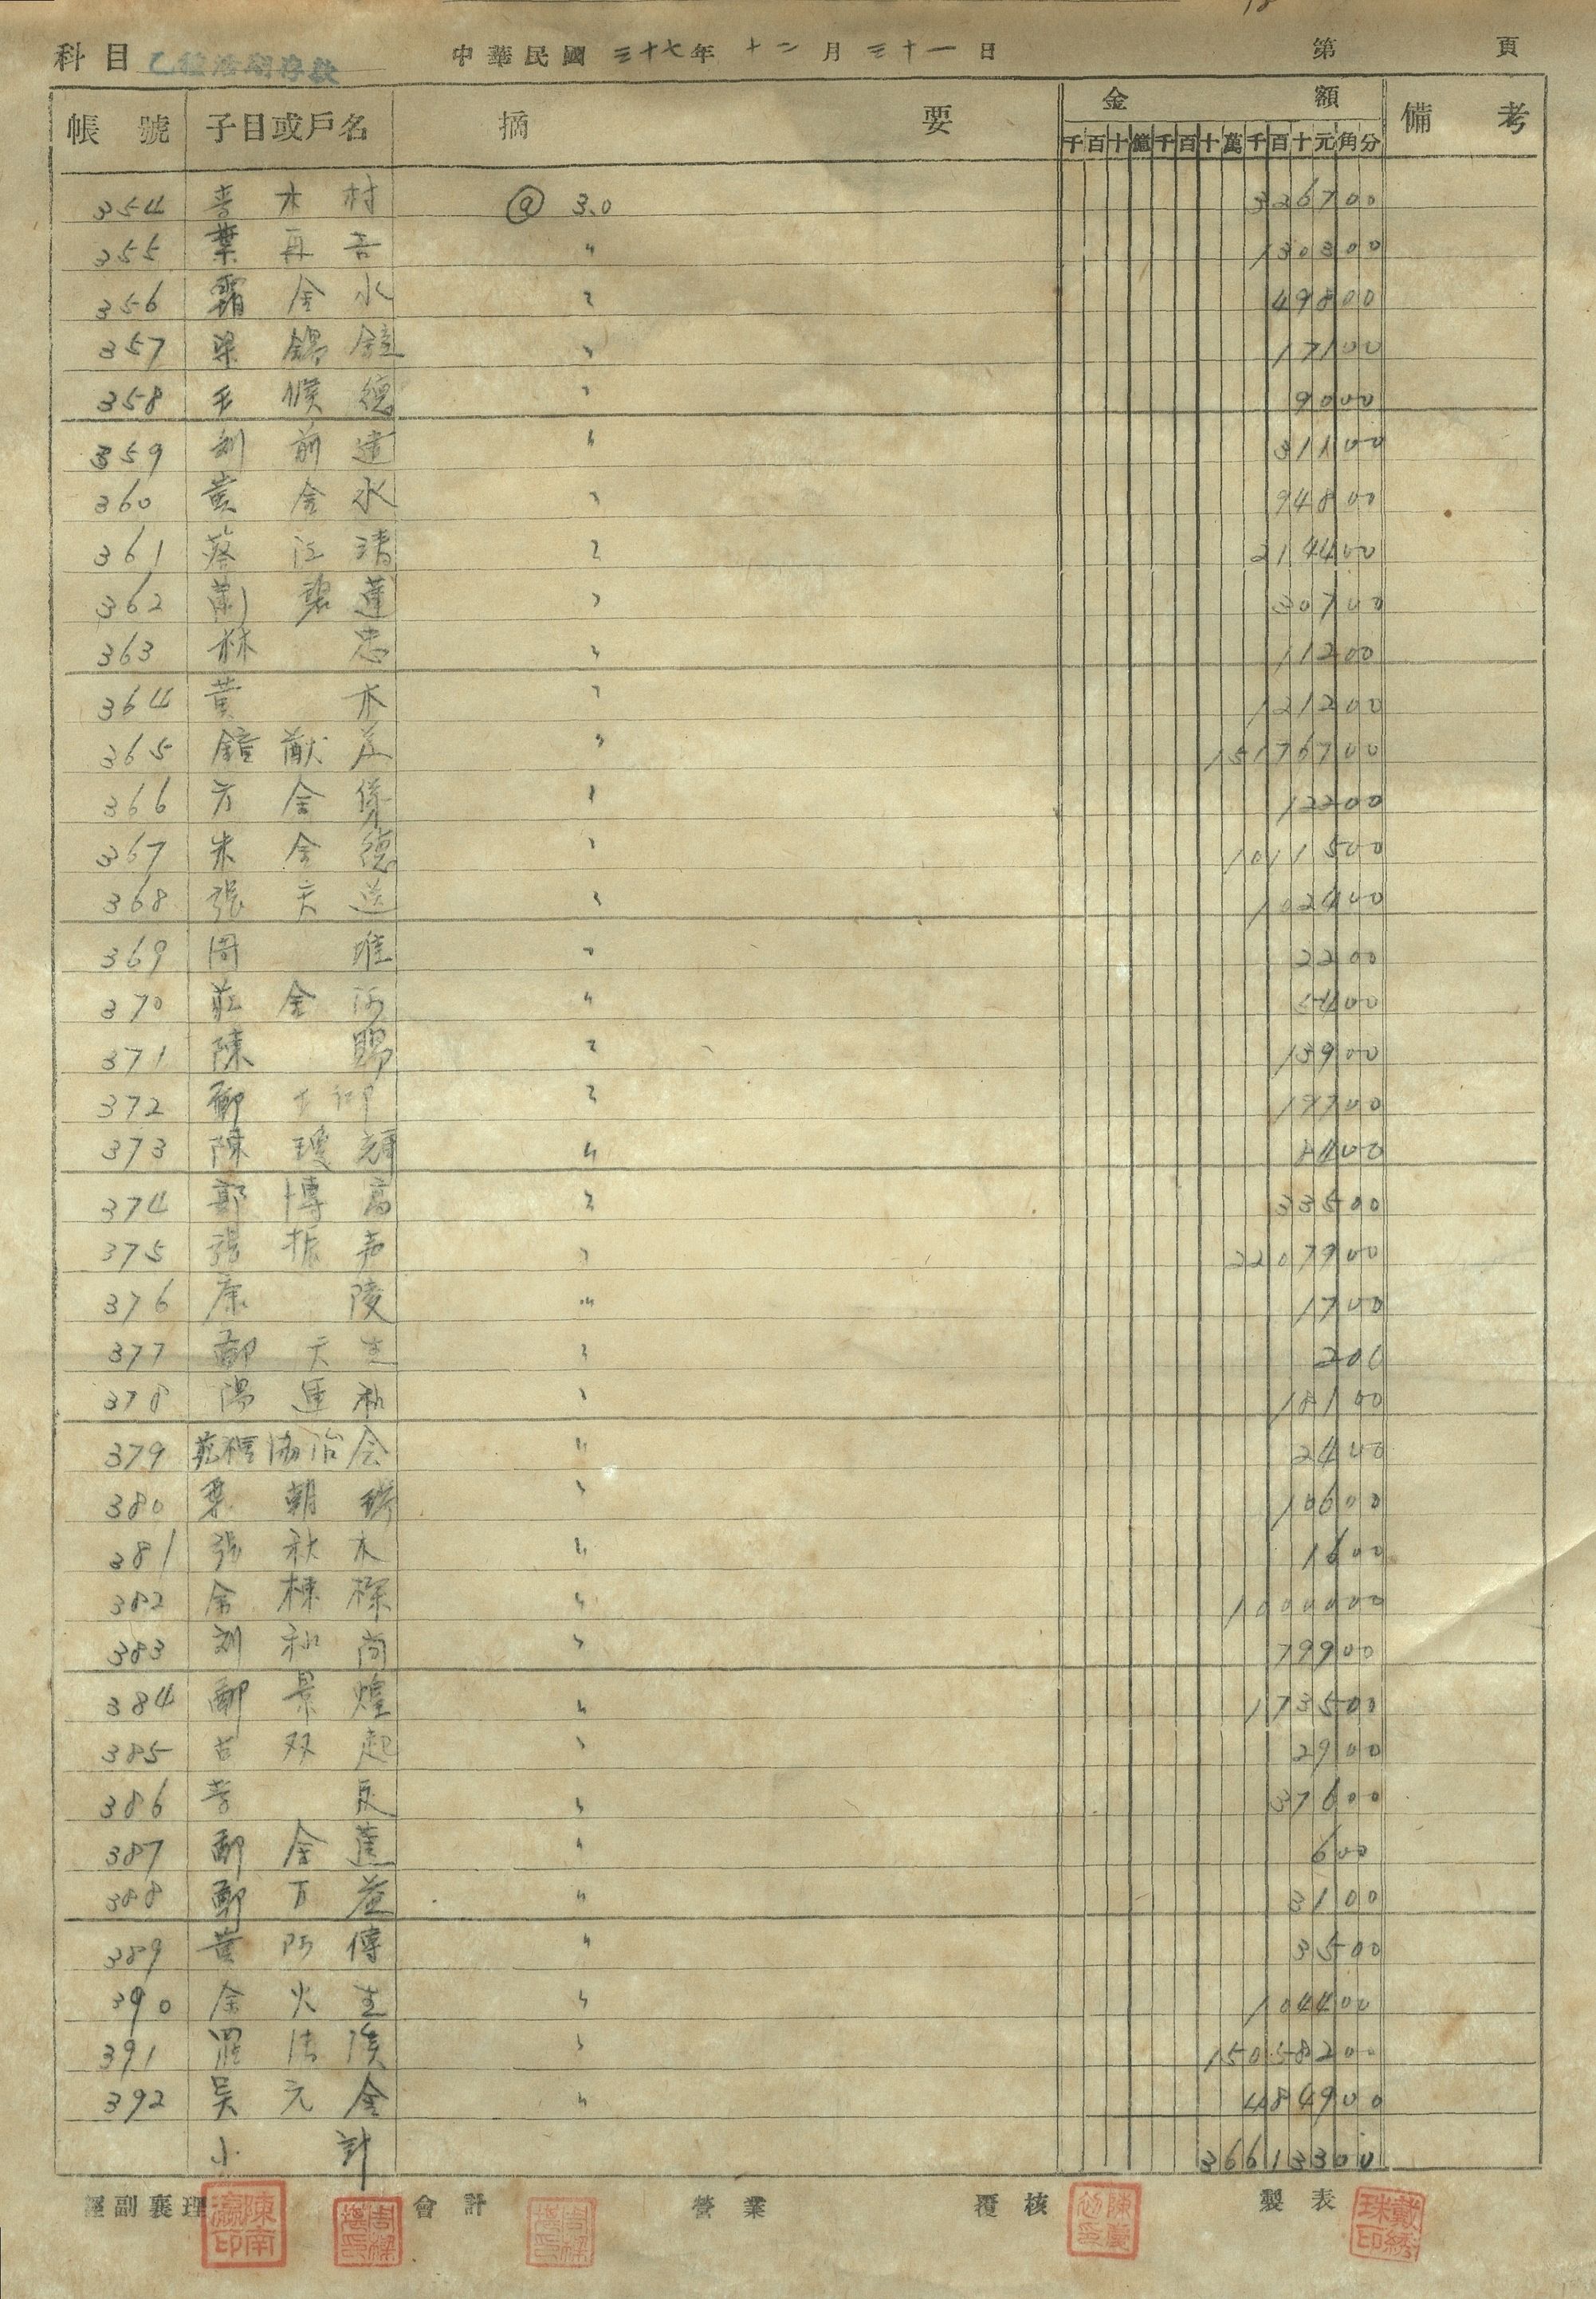 科目 乙種活期存款 中華民國 三十七年 十二月 三十一日 第 頁
帳號 子目或戶名 摘要 金額 備考
千百十億千百十萬千百十元角分
354 木村 @ 3.0 326700
355 葉再 〃 130300
356 金水 〃 49800
357 梁錫鐘 〃 17100
358 毛 德 〃 9000
359 劉前達 〃 31100
360 黃金水 〃 94800
361 蔡江清 〃 214400
362 蓮 〃 30700
363 林忠 〃 11200
364 黃木 〃 121200
365 鐘猷 〃 15176700
366 方金 〃 12200
367 朱金德 〃 1011500
368 張天送 〃 102400
369 周堆 〃 2200
370 莊金河 〃 5400
371 陳賜 〃 13900
372 鄭 〃 19700
373 陳瓊輝 〃 8400
374 郭博高 〃 33500
375 張振声 〃 2207900
376 康陵 〃 1700
377 鄭天生 〃 200
378 陽運和 〃 18100
379 協治会 〃 2400
380 朝 〃 10600
381 張秋木 〃 1600
382 余棟樑 〃 1000000
383 刘和尚 〃 79900
384 鄭景煌 〃 173500
385 古双起 〃 2900
386 〃 37600
387 鄭金蓮 〃 600
388 鄭万益 〃 3100
389 黃阿傳 〃 3500
390 余火生 〃 104400
391 羅 〃 15058200
392 吳元金 〃 484900
小計 36613300
理襄副經 會計 營業 覆核 製表
陳南瀛印 戴綉珠印